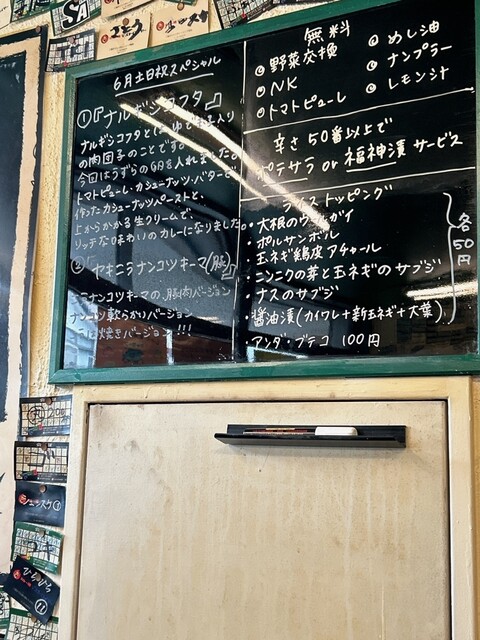 6月土日祝スペシャル
①『ナルギシコフタ』
ナルギシコフタと
入り
の肉団子のことです。
今回はうずらの
を入れました。
トマトピューレ・カシューナッツ・バターで
作ったカシューナッツペーストと、
上からかかる生クリームで、
リッチな味わいのカレーになりました。
②『ヤキニラナンコツキーマ(豚)』
ニラナンコツキーマの、豚肉バージョン
ナンコツ軟らかバージョン
焼きバージョン!!!
無料
◎野菜交換
◎NK
◎トマトピューレ
◎めし油
◎ナンプラー
◎レモン汁
辛さ50番以上で
ポテサラ or 福神漬サービス
ライストッピング
・大根のウールガイ
・ポルサンボル
・玉ネギ鶏皮アチャール
・ニンニクの芽と玉ネギのサブジ
・ナスのサブジ
・醤油漬(カイワレ+新玉ネギ+大葉)
各50円
・アンダ・ブテコ 100円
SA
シュンスケ⑦
ひらひら
⑪